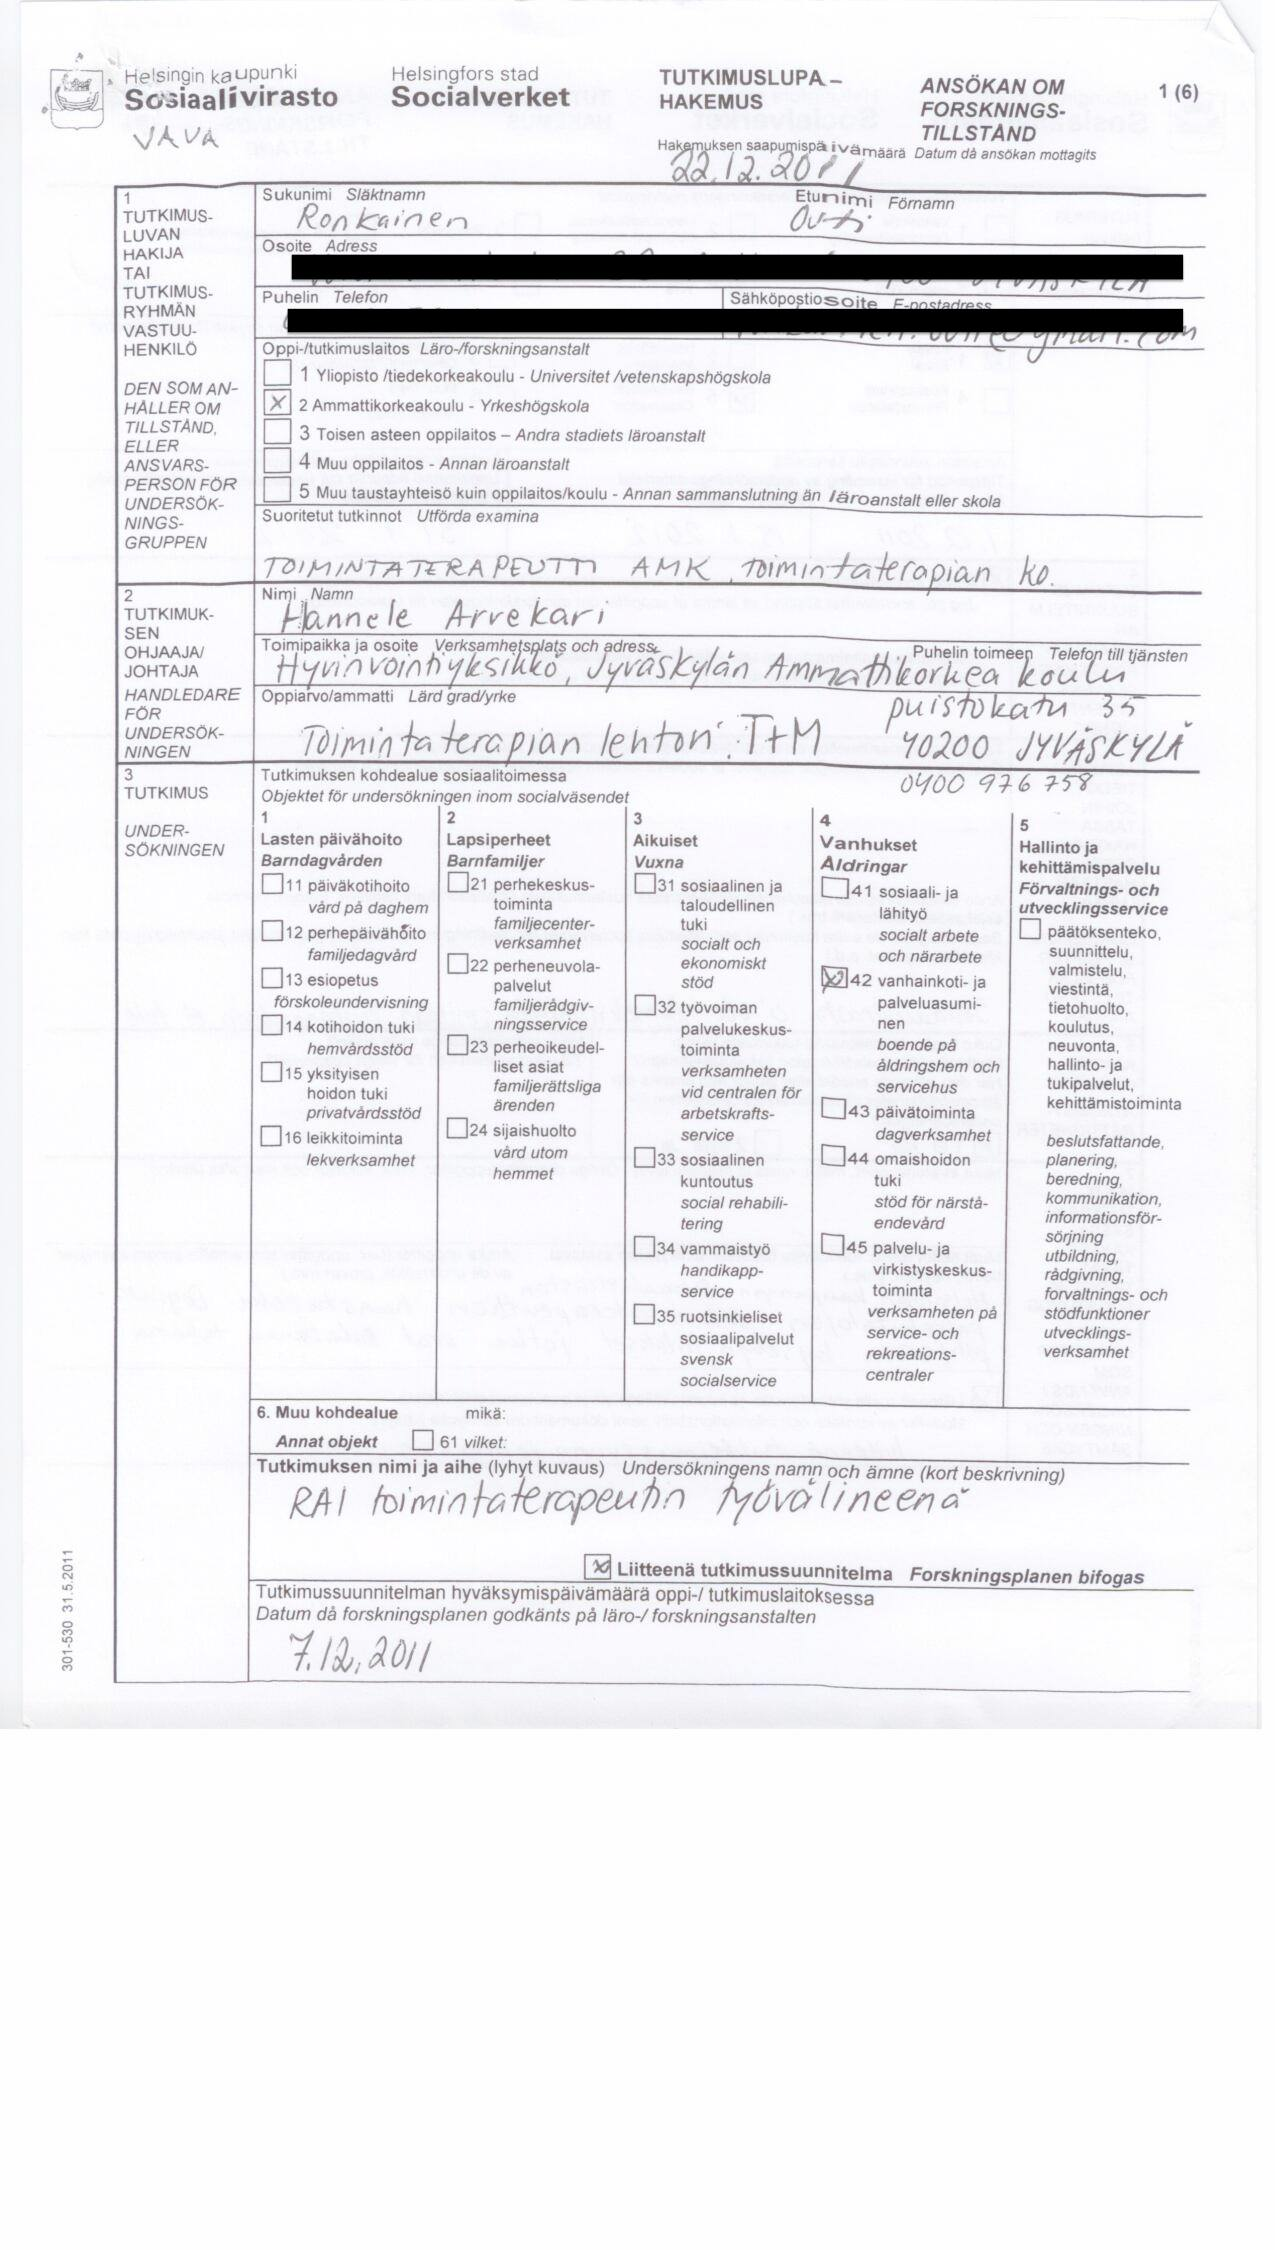 Helsingin kaupunki
Sosiaalivirasto
Helsingfors stad
Socialverket
VAVA
TUTKIMUSLUPA –
HAKEMUS
ANSÖKAN OM
FORSKNINGS-
TILLSTÅND
1 (6)
Hakemuksen saapumispäivämäärä Datum då ansökan mottagits
22.12.2011
1
TUTKIMUS-
LUVAN
HAKIJA
TAI
TUTKIMUS-
RYHMÄN
VASTUU-
HENKILÖ
DEN SOM AN-
HÅLLER OM
TILLSTÅND,
ELLER
ANSVARS-
PERSON FÖR
UNDERSÖK-
NINGS-
GRUPPEN
Sukunimi Släktnamn
Ronkainen
Etunimi Förnamn
Outi
Osoite Adress
Puhelin Telefon
Sähköpostiosoite E-postadress
Oppi-/tutkimuslaitos Läro-/forskningsanstalt
1 Yliopisto /tiedekorkeakoulu - Universitet /vetenskapshögskola
X 2 Ammattikorkeakoulu - Yrkeshögskola
3 Toisen asteen oppilaitos – Andra stadiets läroanstalt
4 Muu oppilaitos - Annan läroanstalt
5 Muu taustayhteisö kuin oppilaitos/koulu - Annan sammanslutning än läroanstalt eller skola
Suoritetut tutkinnot Utförda examina
TOIMINTATERAPEUTTI AMK, toimintaterapian ko.
2
TUTKIMUK-
SEN
OHJAAJA/
JOHTAJA
HANDLEDARE
FÖR
UNDERSÖK-
NINGEN
Nimi Namn
Hannele Arvekari
Toimipaikka ja osoite Verksamhetsplats och adress
Puhelin toimeen Telefon till tjänsten
Hyvinvointiyksikkö, Jyväskylän Ammattikorkea koulu
Oppiarvo/ammatti Lärd grad/yrke
puistokatu 35
Toimintaterapian lehtori, TtM
40200 JYVÄSKYLÄ
0400 976 758
3
TUTKIMUS
UNDER-
SÖKNINGEN
Tutkimuksen kohdealue sosiaalitoimessa
Objektet för undersökningen inom socialväsendet
1
Lasten päivähoito
Barndagvården
11 päiväkotihoito
vård på daghem
12 perhepäivähoito
familjedagvård
13 esiopetus
förskoleundervisning
14 kotihoidon tuki
hemvårdsstöd
15 yksityisen
hoidon tuki
privatvårdsstöd
16 leikkitoiminta
lekverksamhet
2
Lapsiperheet
Barnfamiljer
21 perhekeskus-
toiminta
familjecenter-
verksamhet
22 perheneuvola-
palvelut
familjerådgiv-
ningsservice
23 perheoikeudel-
liset asiat
familjerättsliga
ärenden
24 sijaishuolto
vård utom
hemmet
3
Aikuiset
Vuxna
31 sosiaalinen ja
taloudellinen
tuki
socialt och
ekonomiskt
stöd
32 työvoiman
palvelukeskus-
toiminta
verksamheten
vid centralen för
arbetskrafts-
service
33 sosiaalinen
kuntoutus
social rehabili-
tering
34 vammaistyö
handikapp-
service
35 ruotsinkieliset
sosiaalipalvelut
svensk
socialservice
4
Vanhukset
Åldringar
41 sosiaali- ja
lähityö
socialt arbete
och närarbete
X 42 vanhainkoti- ja
palveluasumi-
nen
boende på
åldringshem och
servicehus
43 päivätoiminta
dagverksamhet
44 omaishoidon
tuki
stöd för närstå-
endevård
45 palvelu- ja
virkistyskeskus-
toiminta
verksamheten på
service- och
rekreations-
centraler
5
Hallinto ja
kehittämispalvelu
Förvaltnings- och
utvecklingsservice
päätöksenteko,
suunnittelu,
valmistelu,
viestintä,
tietohuolto,
koulutus,
neuvonta,
hallinto- ja
tukipalvelut,
kehittämistoiminta
beslutsfattande,
planering,
beredning,
kommunikation,
informationsför-
sörjning
utbildning,
rådgivning,
forvaltnings- och
stödfunktioner
utvecklings-
verksamhet
6. Muu kohdealue mikä:
Annat objekt 61 vilket:
Tutkimuksen nimi ja aihe (lyhyt kuvaus) Undersökningens namn och ämne (kort beskrivning)
RAI toimintaterapeutin työvälineenä
X Liitteenä tutkimussuunnitelma Forskningsplanen bifogas
Tutkimussuunnitelman hyväksymispäivämäärä oppi-/ tutkimuslaitoksessa
Datum då forskningsplanen godkänts på läro-/ forskningsanstalten
7.12.2011
301-530 31.5.2011